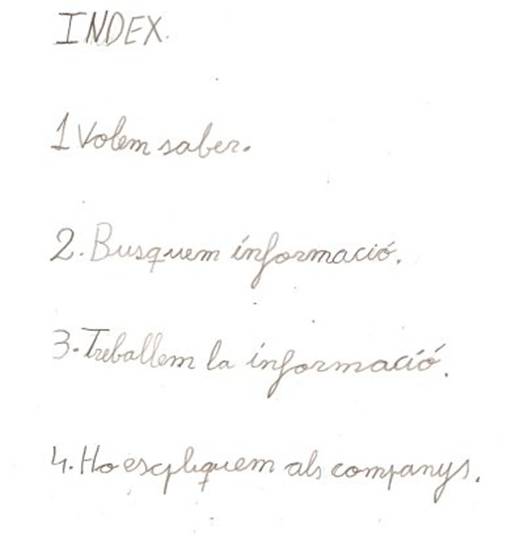 INDEX.
1 Volem saber.
2. Busquem informació.
3. Treballem la informació.
4. Ho expliquem als companys.